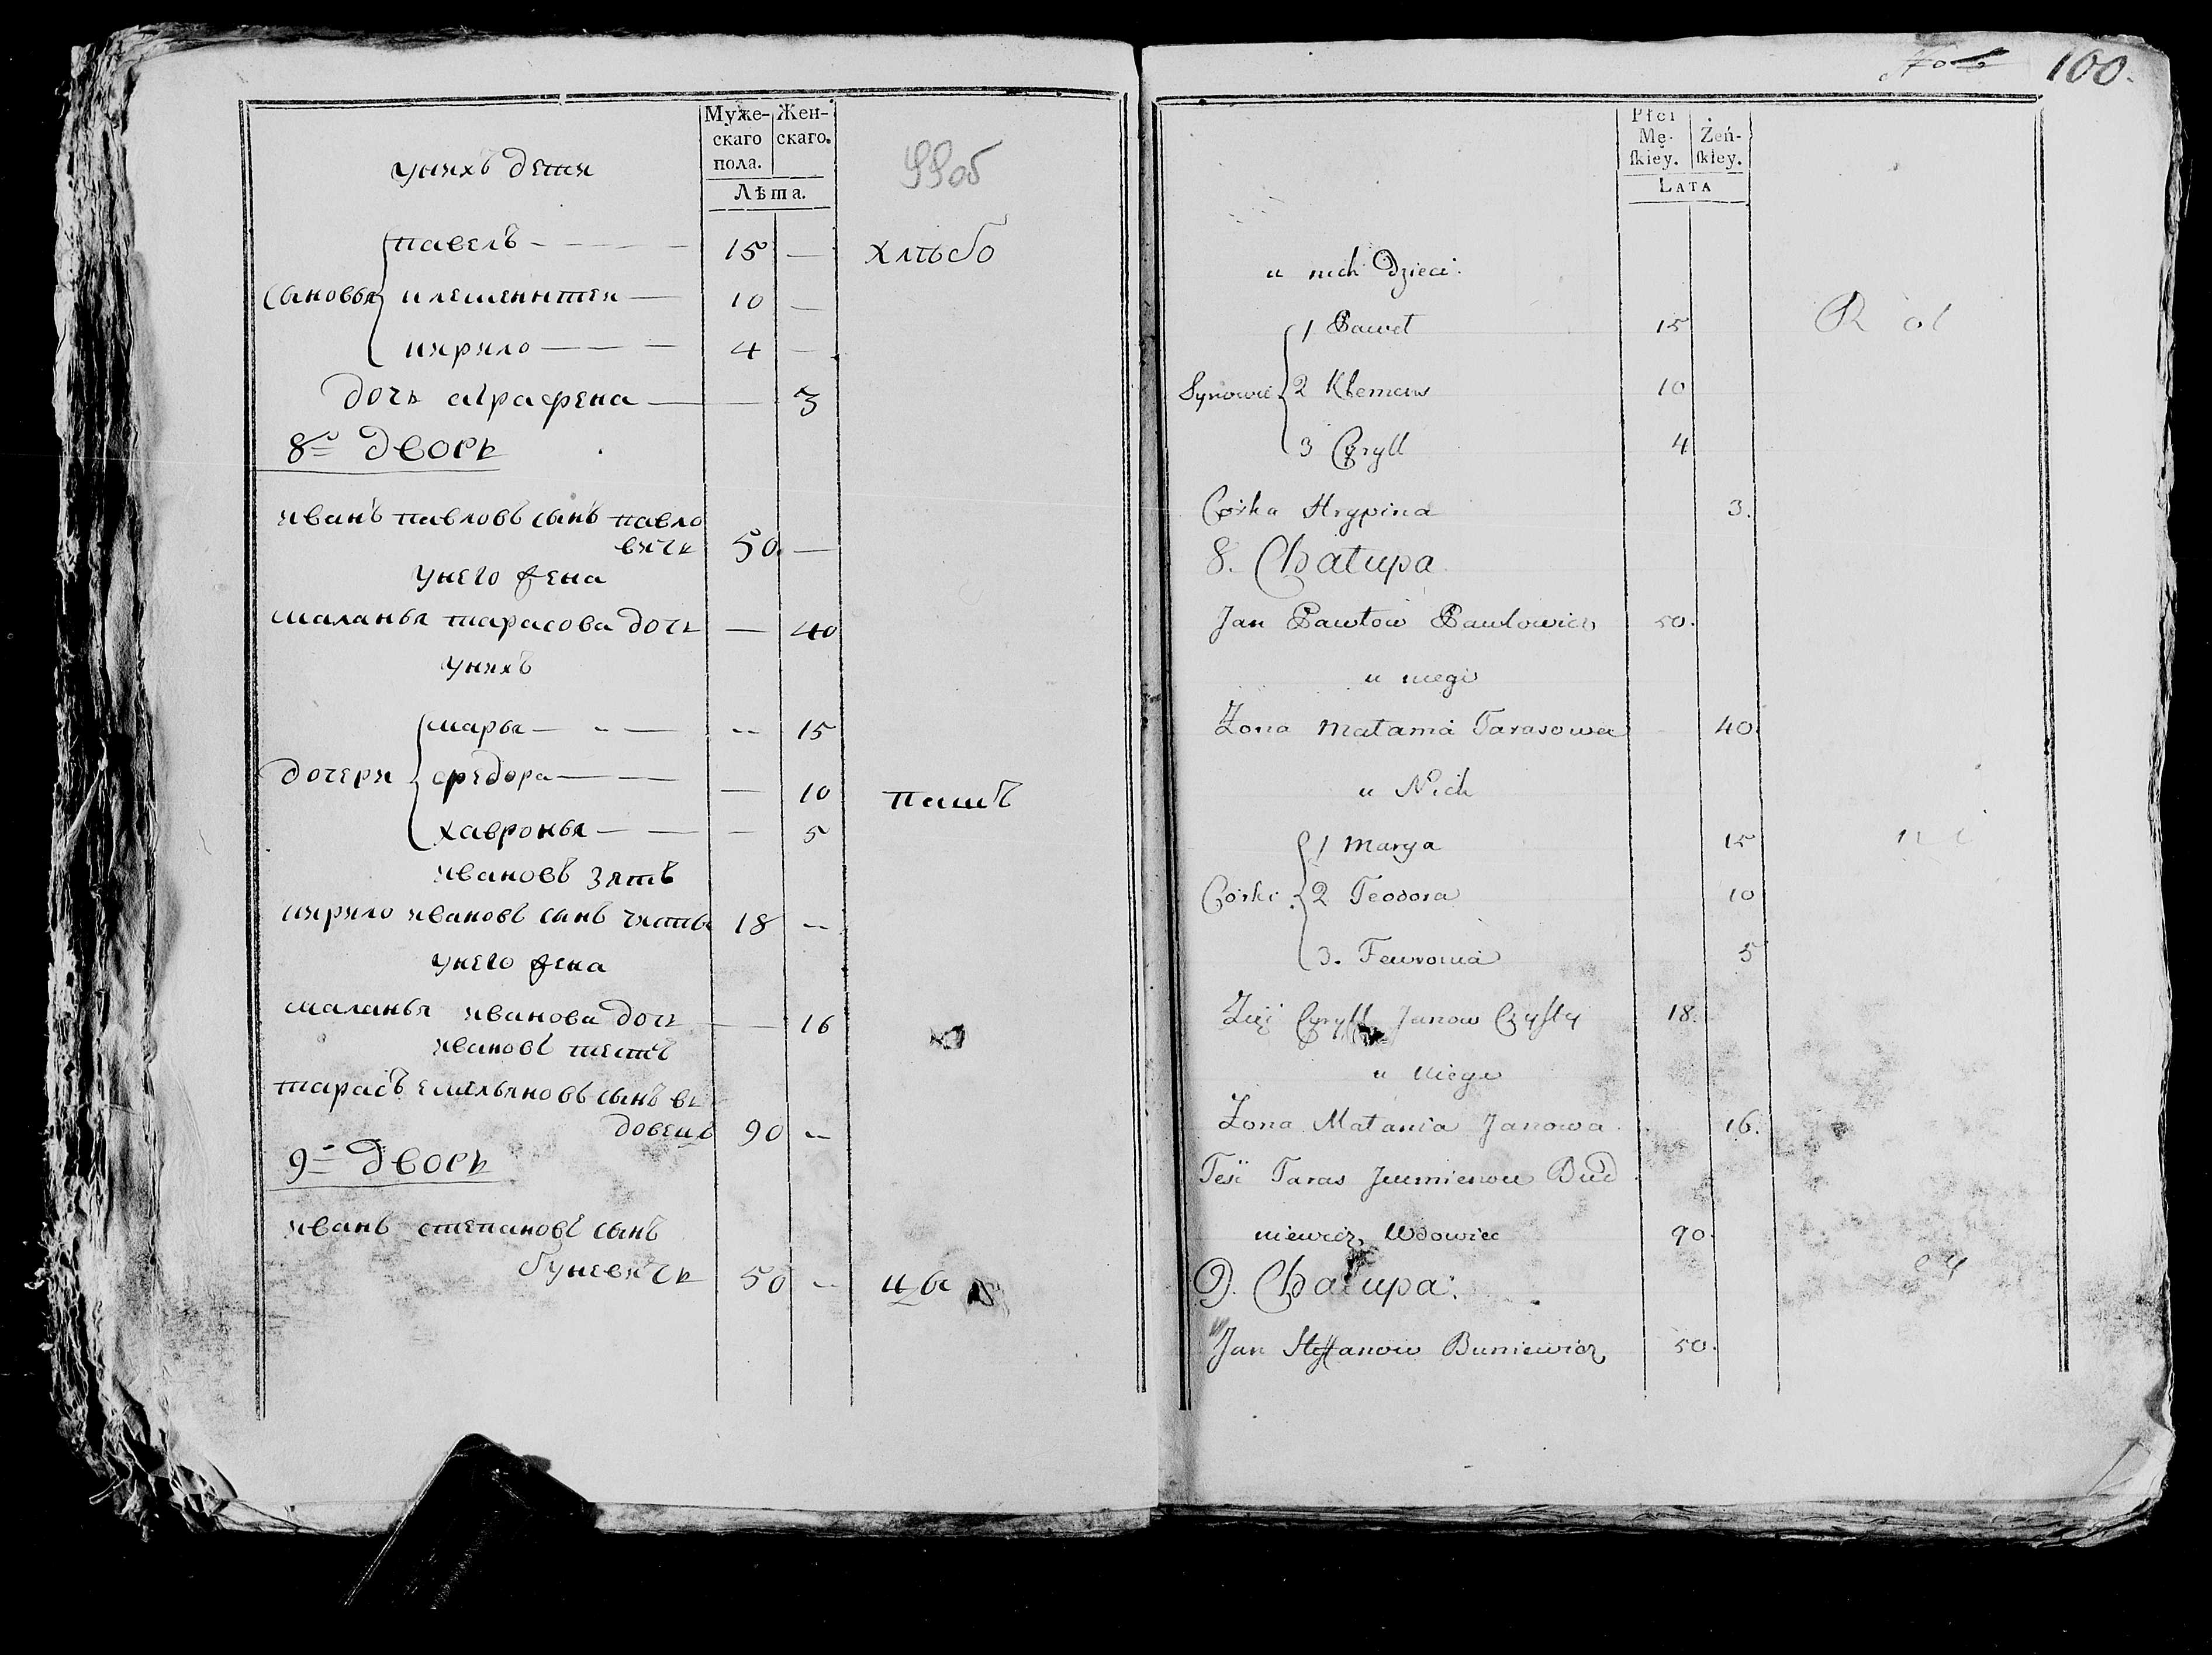 Муже-
скаго
пола.
Жен-
скаго.
Лѣта.
99об
унихъ дети
павелъ 15 — хлѣбо
сыновья клеменътеи 10 —
кирило 4 —
дочь аграфена — 3
8й дворъ
иванъ павловъ сынъ павло
вичь 50. —
унего жена
маланья тарасова дочь — 40
унихъ
марья -- 15
дочери федора — 10 пашъ
хавронья — 5
ивановъ зять
кирило ивановъ сынъ чисты 18 --
унего жена
маланья иванова дочь — 16
ивановъ тесть
тарасъ емельяновъ сынъ в
довецъ 90 --
9й дворъ
иванъ степановъ сынъ
буневичь 50 --
100.
Płci
Mę-
ſkiey.
Żeń-
ſkiey.
LATA
u nich Dzieci:
1 Paweł 15 Rol
Synowie 2 Klemens 10
3 Cyryll 4
Corka Hrypina 3.
8. Chałupa
Jan Pawłow Pawłowicz 50.
u niego
Żona Małania Tarasowa 40
u Nich
1 Marya 15
Corki 2 Teodora 10
3. Fewronia 5
Zięć Cyryll Janow Czyſty 18.
u Niego
Żona Małania Janowa 16.
Teść Taras Jumienow Bud
niewicz Wdowiec 90.
9. Chałupa:
Jan Steffanow Buniewicz 50.